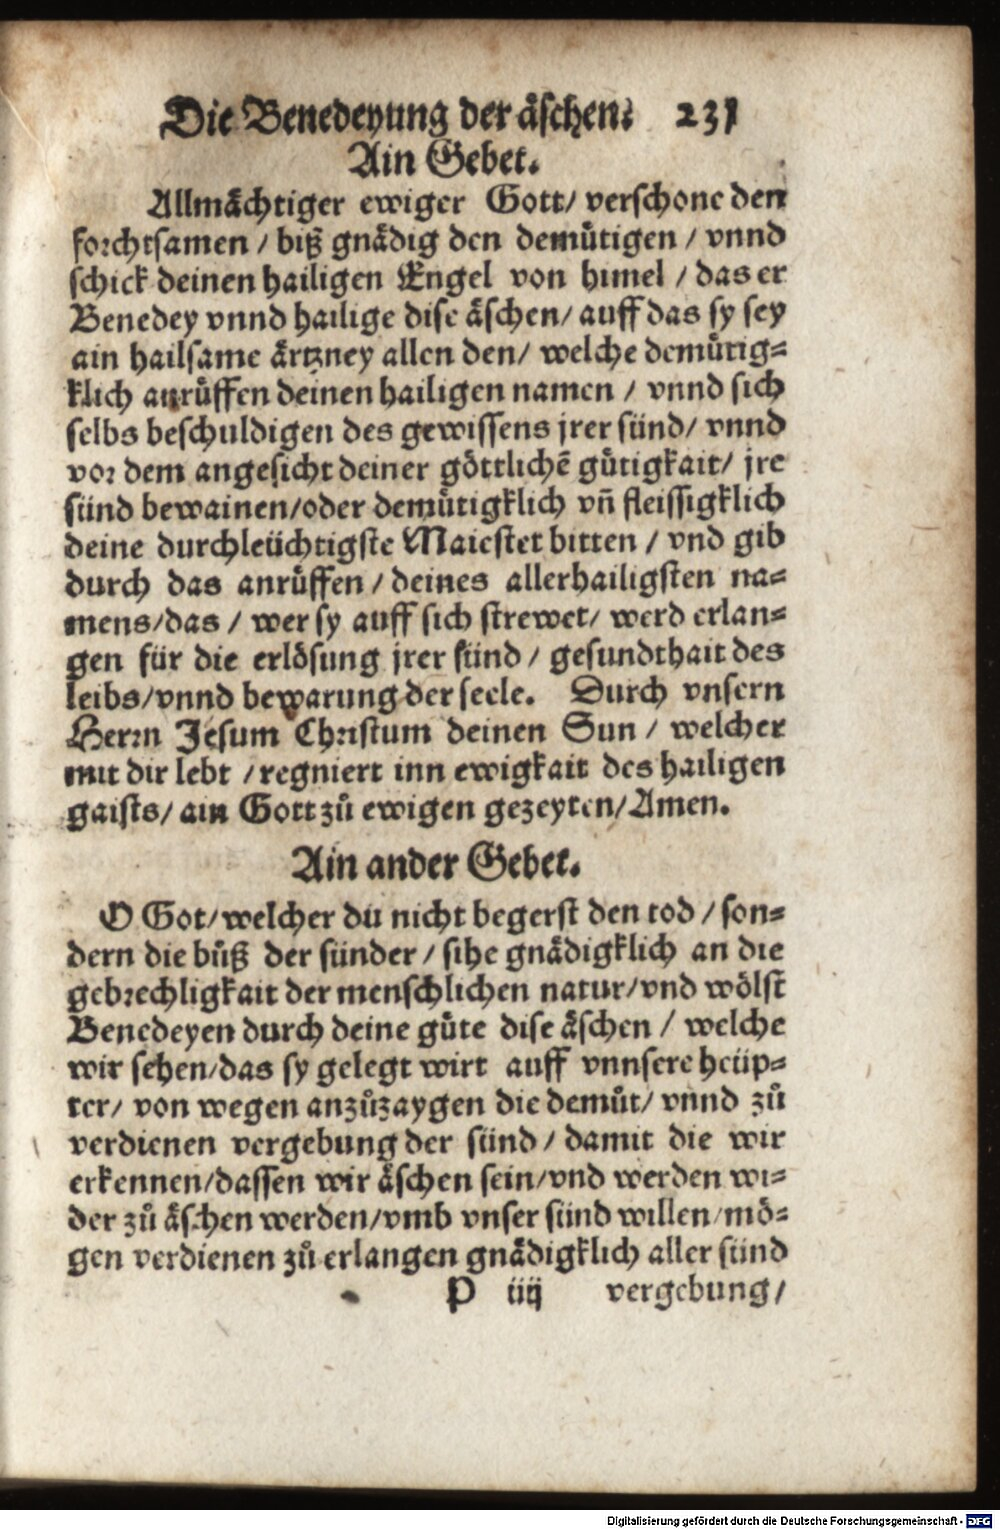 Die Benedeyung der äschen. 231
Ain Gebet.
Allmächtiger ewiger Gott/ verschone den
forchtsamen / biß gnädig den demütigen / vnnd
schick deinen hailigen Engel von himel / das er
Benedey vnnd hailige dise äschen/ auff das sy sey
ain hailsame ärtzney allen den/ welche demütig=
klich anrüffen deinen hailigen namen / vnnd sich
selbs beschuldigen des gewissens jrer sünd/ vnnd
vor dem angesicht deiner göttlichē gütigkait/ jre
sünd bewainen/oder demütigklich vñ fleissigklich
deine durchleüchtigste Maiestet bitten / vnd gib
durch das anrüffen / deines allerhailigsten na=
mens/das / wer sy auff sich strewet/ werd erlan=
gen für die erlösung jrer sünd / gesundthait des
leibs/vnnd bewarung der seele. Durch vnsern
Herrn Jesum Christum deinen Sun / welcher
mit dir lebt / regniert inn ewigkait des hailigen
gaists/ ain Gott zů ewigen gezeyten/Amen.
Ain ander Gebet.
O Got/welcher du nicht begerst den tod / son=
dern die bůß der sünder / sihe gnädigklich an die
gebrechligkait der menschlichen natur/vnd wölst
Benedeyen durch deine güte dise äschen / welche
wir sehen/das sy gelegt wirt auff vnnsere heüp=
ter/ von wegen anzůzaygen die demůt/ vnnd zů
verdienen vergebung der sünd / damit die wir
erkennen/dassen wir äschen sein/vnd werden wi=
der zů äschen werden/vmb vnser sünd willen/mö=
gen verdienen zů erlangen gnädigklich aller sünd
P iiij vergebung/
Digitalisierung gefördert durch die Deutsche Forschungsgemeinschaft - DFG